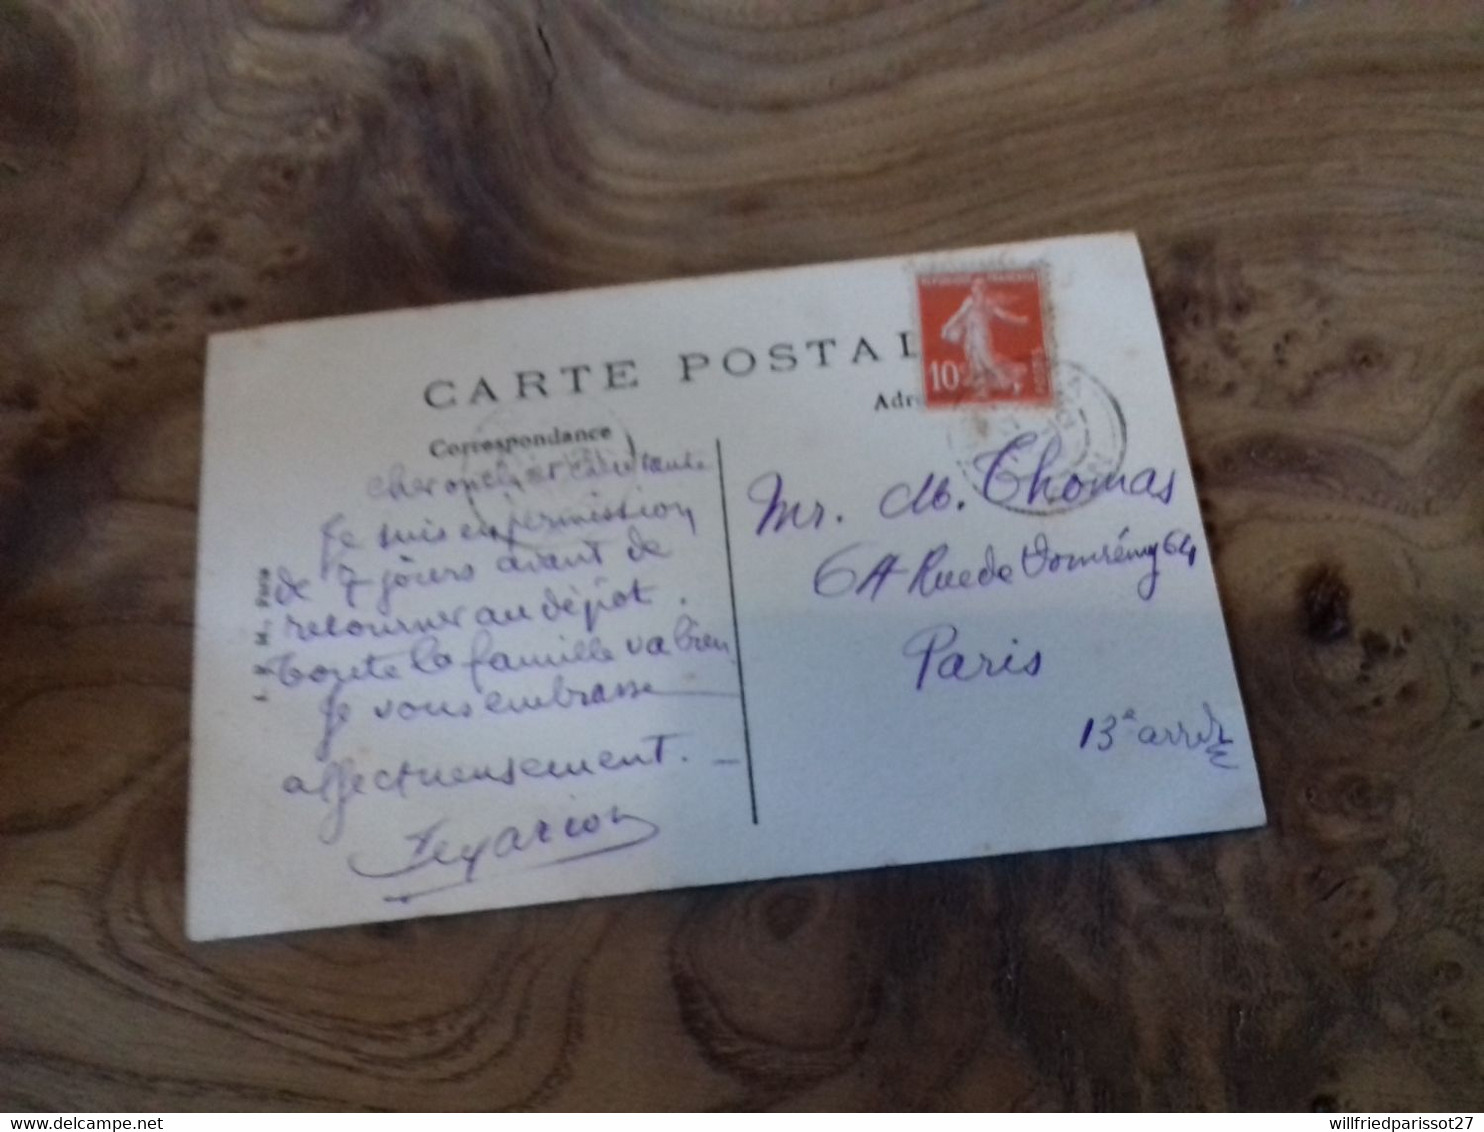 CARTE POSTAL
Correspondance
Adr
RÉPUBLIQUE FRANÇAISE
10c
POSTES
cher oncle et chère tante
Je suis en permission
de 7 jours avant de
retourner au dépôt.
toute la famille va bien
Je vous embrasse
affectueusement. _
Mr. M. Thomas
64 Rue de Domrémy 64
Paris
13e arrdt
Paris
delcampe.net
willfriedparissot27